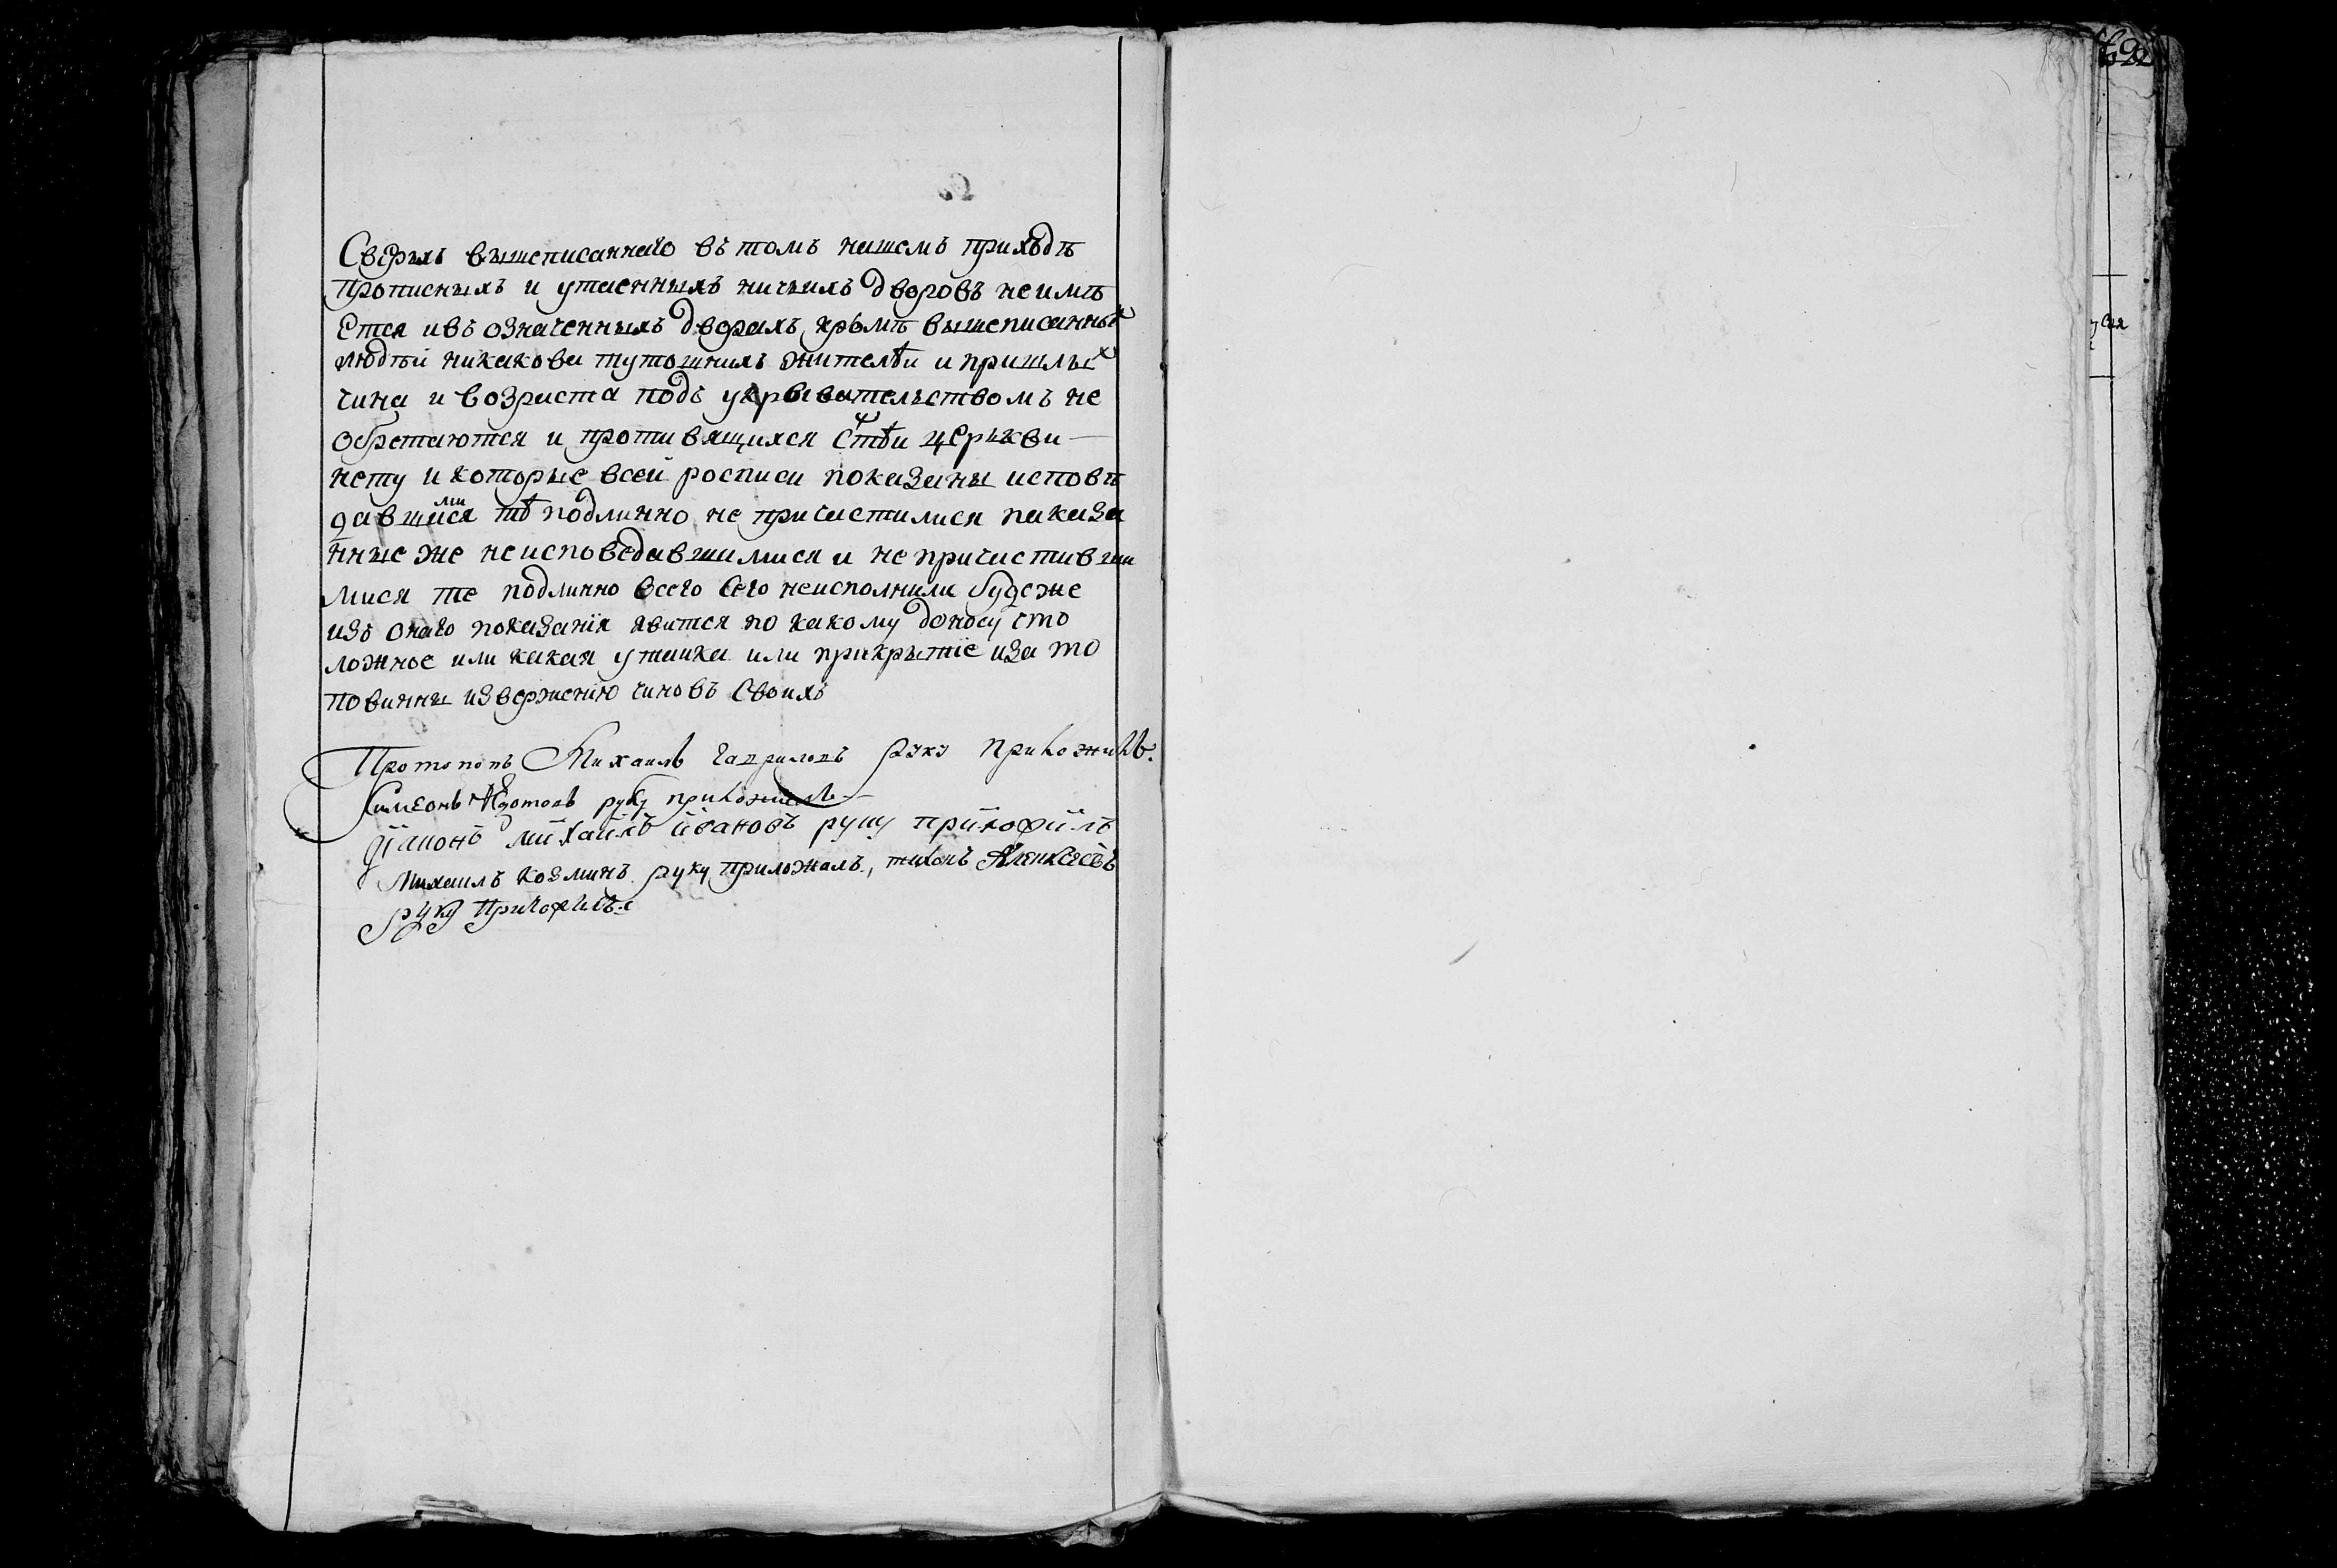 Сверьхъ вышеписаннаго въ томъ нашемъ приходѣ
прописныхъ и утаенныхъ ничьихъ дворовъ не имѣ
ется и въ означенныхъ дворахъ кромѣ вышеписанныхъ
людѣй никакова тутошнихъ жителѣи и пришлыхъ
чина и возраста подъ укрывательствомъ не
обретаются и противящихся стѣи церькви
нету и которые всей росписи показаны исповѣ
давшимися тѣ подлинно не причастилися показа
нные же неисповедавшимися и не причаствши
мися те подлинно всего сего неисполнили буде же
изъ онаго показанїя явится по какому доносу что
ложное или какая утаика или прикрытїе и за то
повинны извержению чиновъ своихъ
Протопопъ Михаилъ Гаврилопъ руку приложилъ.
Симеонъ руку приложилъ
дїаконъ мїхаїлъ ївановъ руку прїложїлъ
Михаилъ Козминъ руку приложилъ, тихонъ Алексеевъ
руку приложилъ